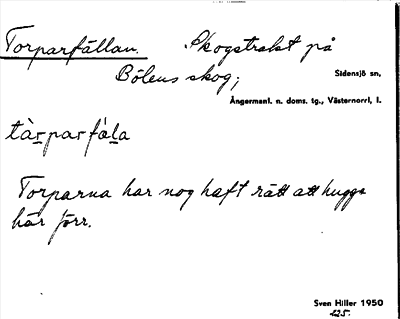 Torparfällan. Skogstrakt på
Bölens skog;
Sidensjö sn,
Ångermanl. n. doms. tg., Västernorrl, l.
tàrparfála
Torparna har nog haft rätt att hugga
här förr.
Sven Hiller 1950
425.